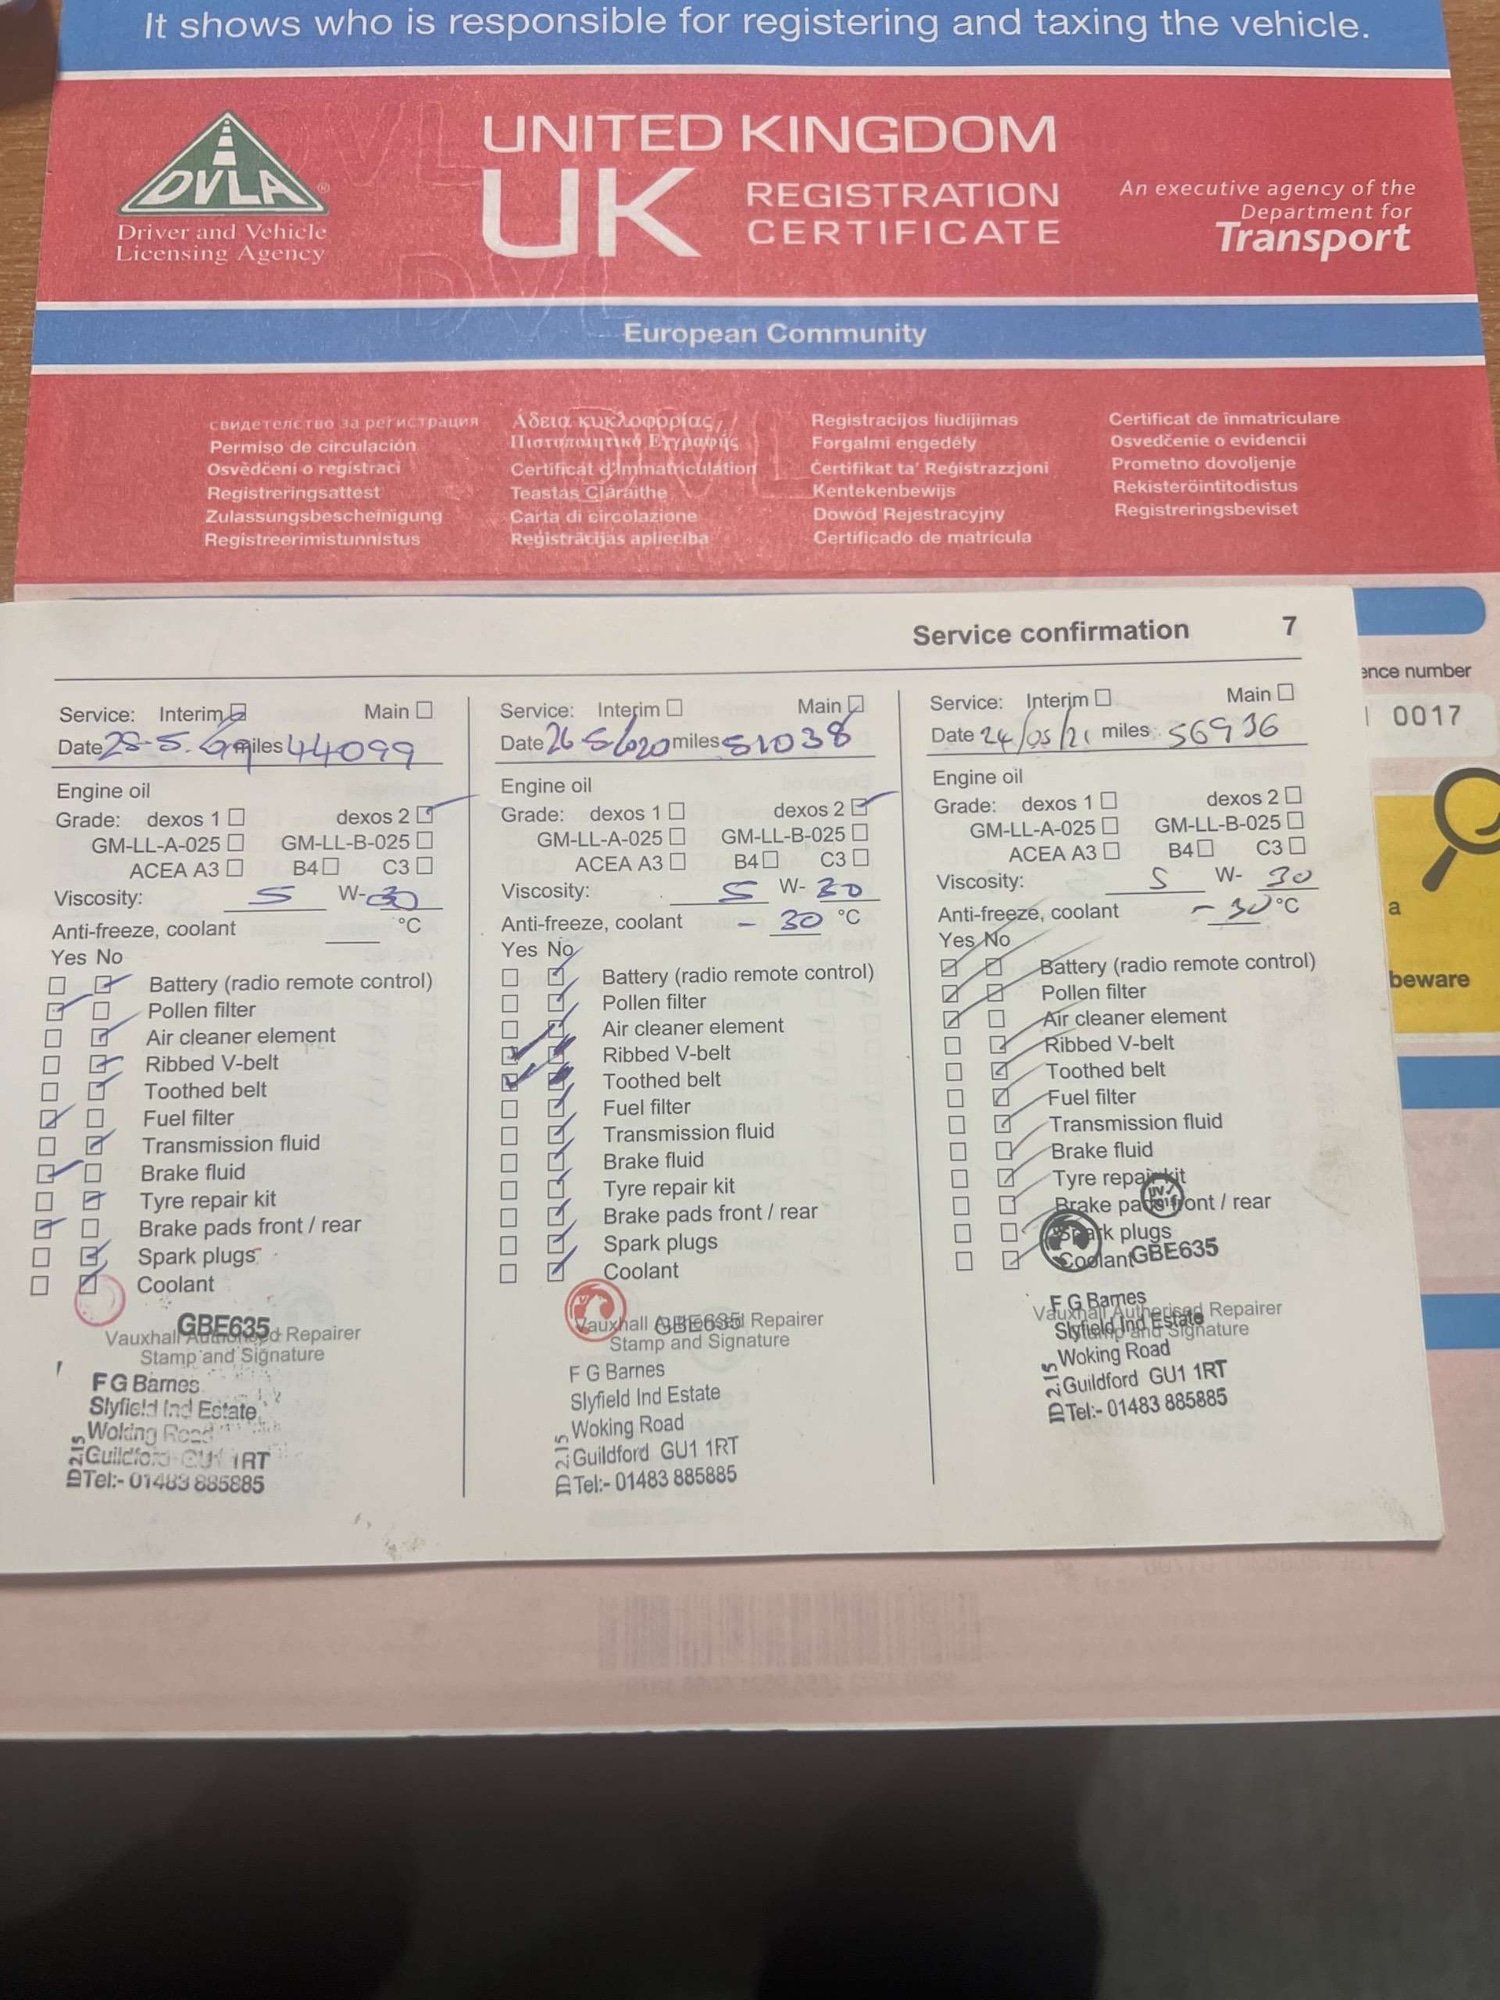 It shows who is responsible for registering and taxing the vehicle.
DVLA
Driver and Vehicle
Licensing Agency
UNITED KINGDOM
UK REGISTRATION
CERTIFICATE
An executive agency of the
Department for
Transport
European Community
свидетелство за регистрация
Permiso de circulación
Osvědčení o registraci
Registreringsattest
Zulassungsbescheinigung
Registreerimistunnistus
Άδεια κυκλοφορίας/
Πιστοποιητικό Εγγραφής
Certificat d'Immatriculation
Teastas Cláraithe
Carta di circolazione
Reģistrācijas apliecība
Registracijos liudijimas
Forgalmi engedély
Ċertifikat ta' Reġistrazzjoni
Kentekenbewijs
Dowód Rejestracyjny
Certificado de matrícula
Certificat de înmatriculare
Osvedčenie o evidencii
Prometno dovoljenje
Rekisteröintitodistus
Registreringsbeviset
ence number
0017
a
beware
Service confirmation 7
Service: Interim Main
Date 28-5. miles 44099
Engine oil
Grade: dexos 1 dexos 2
GM-LL-A-025 GM-LL-B-025
ACEA A3 B4 C3
Viscosity: 5 W- 30
Anti-freeze, coolant °C
Yes No
Battery (radio remote control)
Pollen filter
Air cleaner element
Ribbed V-belt
Toothed belt
Fuel filter
Transmission fluid
Brake fluid
Tyre repair kit
Brake pads front / rear
Spark plugs
Coolant
GBE635
Vauxhall Authorised Repairer
Stamp and Signature
F G Barnes
Slyfield Ind Estate
Woking Road
Guildford GU1 1RT
Tel:- 01483 885885
ID 2.15
Service: Interim Main
Date 26 5/2020 miles 51038
Engine oil
Grade: dexos 1 dexos 2
GM-LL-A-025 GM-LL-B-025
ACEA A3 B4 C3
Viscosity: 5 W- 30
Anti-freeze, coolant - 30 °C
Yes No
Battery (radio remote control)
Pollen filter
Air cleaner element
Ribbed V-belt
Toothed belt
Fuel filter
Transmission fluid
Brake fluid
Tyre repair kit
Brake pads front / rear
Spark plugs
Coolant
GBE635
Vauxhall Authorised Repairer
Stamp and Signature
F G Barnes
Slyfield Ind Estate
Woking Road
Guildford GU1 1RT
Tel:- 01483 885885
ID 2.15
Service: Interim Main
Date 24/05/21 miles 56936
Engine oil
Grade: dexos 1 dexos 2
GM-LL-A-025 GM-LL-B-025
ACEA A3 B4 C3
Viscosity: 5 W- 30
Anti-freeze, coolant - 30 °C
Yes No
Battery (radio remote control)
Pollen filter
Air cleaner element
Ribbed V-belt
Toothed belt
Fuel filter
Transmission fluid
Brake fluid
Tyre repair kit
Brake pads front / rear
Spark plugs
Coolant
GBE635
Vauxhall Authorised Repairer
Stamp and Signature
F G Barnes
Slyfield Ind Estate
Woking Road
Guildford GU1 1RT
Tel:- 01483 885885
ID 2.15